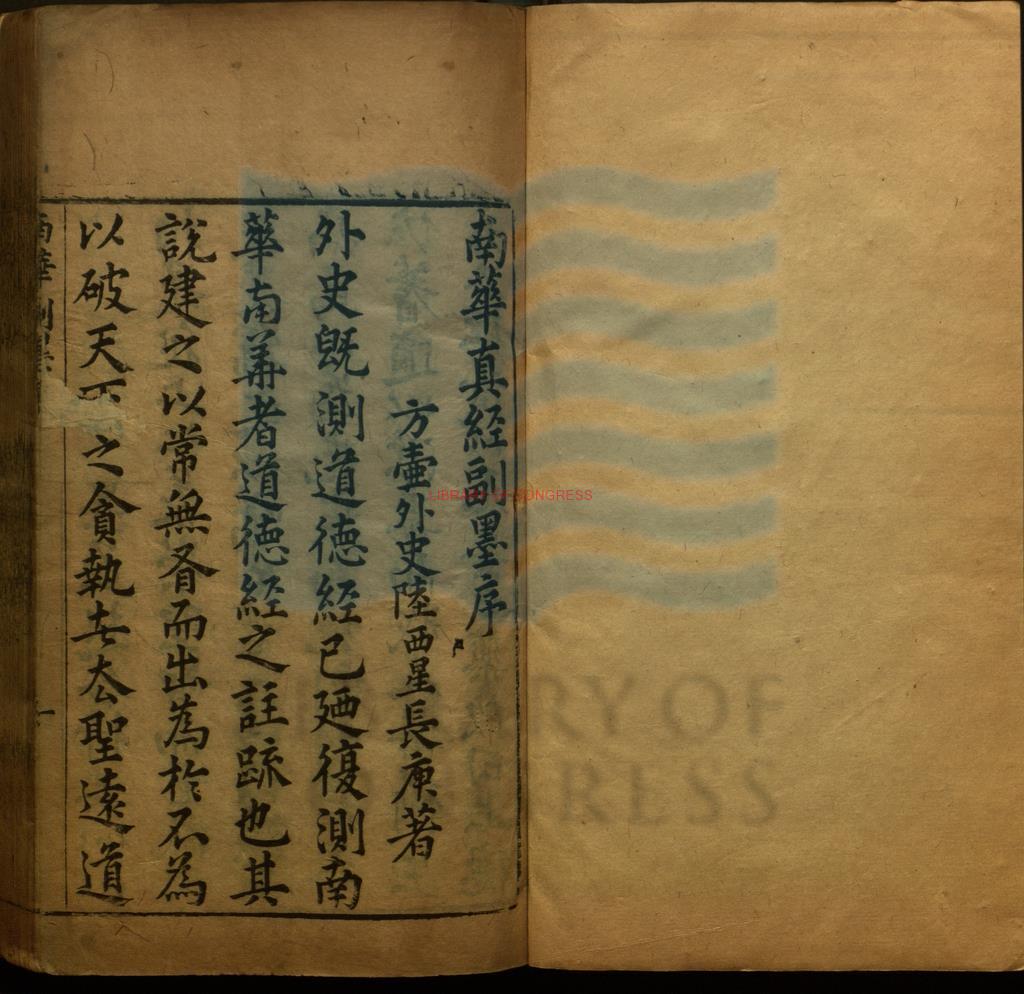 南華真經副墨序
方壷外史陸西星長庚著
外史既測道德經已廼復測南
華南華者道德經之註䟽也其
說建之以常無有而出為於不為
以破天下之貪執去聖遠道
南華副墨
一
LIBRARY OF CONGRESS
LIBRARY OF
CONGRESS